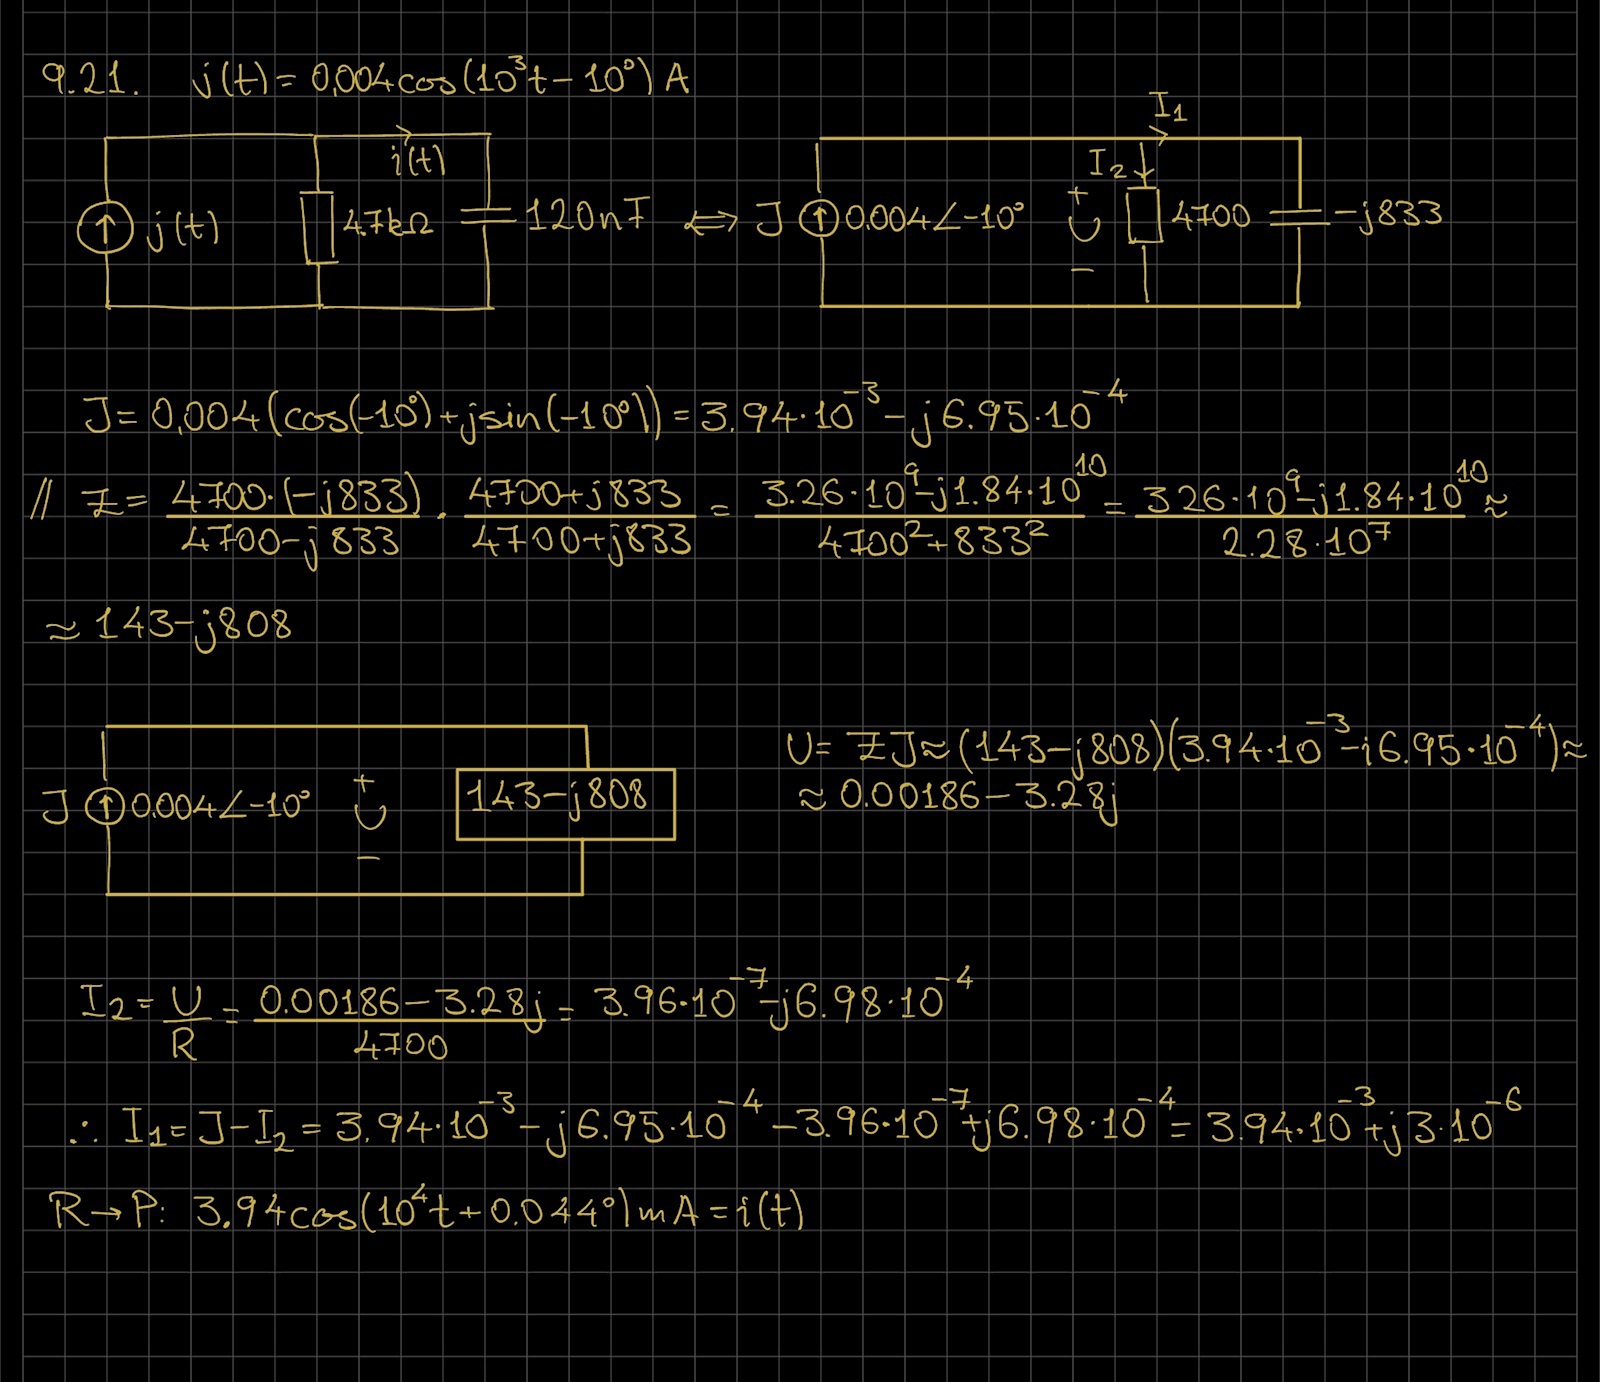 9.21. j(t) = 0,004cos(10³t - 10°) A
i(t)
j(t)
4.7kΩ
120nF
⇔
I₁
I₂
J
0.004∠-10°
+
U
-
4700
-j833
J = 0,004(cos(-10°)+jsin(-10°)) = 3.94·10⁻³ - j6.95·10⁻⁴
// Z = 4700·(-j833)/4700-j833 · 4700+j833/4700+j833 = 3.26·10⁹-j1.84·10¹⁰/4700²+833² = 3.26·10⁹-j1.84·10¹⁰/2.28·10⁷ ≈
≈ 143-j808
J
0.004∠-10°
+
U
-
143-j808
U = ZJ ≈ (143-j808)(3.94·10⁻³-j6.95·10⁻⁴) ≈
≈ 0.00186 - 3.28j
I₂ = U/R = 0.00186 - 3.28j/4700 = 3.96·10⁻⁷-j6.98·10⁻⁴
∴ I₁ = J-I₂ = 3.94·10⁻³ - j6.95·10⁻⁴ - 3.96·10⁻⁷+j6.98·10⁻⁴ = 3.94·10⁻³+j3·10⁻⁶
R→P: 3.94cos(10⁴t+0.044°)mA = i(t)